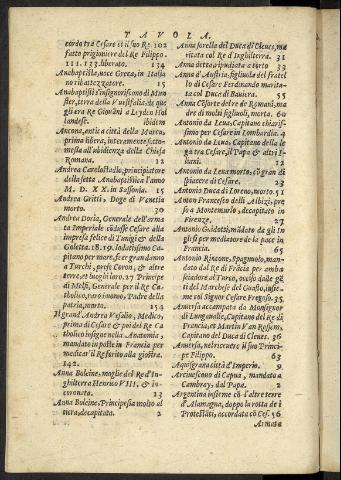 TAVOLA.
cordo tra Cesare et il suo Re. 102
fatto prigioniere del Re Filippo.
111. 133. liberato. 134
Anabaptista, uoce Greca, in Italia
no ribattezzatore. 15
Anabaptisti s'insignoriscono di Mun
ster, terra della Vuesfalia. de que
gli era Re Giouāni a Leyden Hol
landese. ibidem
Ancona, antica città della Marca,
prima libera, interamēte sotto-
messa all'ubidienza della Chiesa
Romana. 12
Andrea Carolostadio, principiatore
della setta Anabaptistica l'anno
M. D. XX. in Sassonia. 15
Andrea Gritti, Doge di Venetia
morto. 30
Andrea Doria, Generale dell'arma
ta Imperiale cōdusse Cesare alla
impresa felice di Tunigi & della
Goletta. 18. 19. lodatissimo Ca-
pitano per mare, fece gran danno
a Turchi, prese Coron, & altre
terre, et luoghi loro. 27 Principe
di Melfi, Generale per il Re Ca-
tholico, morto, Padre della
patria, morto. 154
Il grand' Andrea Vesalio, Medico,
prima di Cesare & poi del Re Ca
tholico insigne nella Anatomia,
mandato in poste in Francia per
medicar'il Re ferito alla giostra.
142.
Anna Bolcine, moglie del Re d'In-
ghilterra Henrico VIII, & in-
coronata. 23
Anna Bolcine, Principessa molto al
tura, decapitata. 2
Anna sorella del Duca di Cleues, ma
ritata col Re d'Inghilterra. 31
Anna detta, ripudiata a torto 33
Anna d'Austria, figliuola del fratel
lo di Cesare Ferdinando marita-
ta col Duca di Bauiera. 55
Anna Cesorte del re de Romāni, ma
dre di molti figliuoli, morta. 60
Antonio da Leua, Capitano chiaris-
simo per Cesare in Lombardia. 4
Antonio da Leua, Capitano della le
ga tra Cesare, il Papa & altri I-
taliani. 12
Antonio da Leua morto. cō gran di
spiacere di Cesare. 23
Antonio Duca di Loreno, morto. 51
Antonio Francesco delli Albizi, pre
so a Montemurlo, decapitato in
Firenze. 27
Antonio Guidotti, mādato da gli In
glesi per mediatore de la pace in
Francia. 65
Antonio Rincone, Spagnuolo, man-
dato dal Re di Frācia per amba
sciadore al Turco, occiso dalle gē
ti del Marchese del Guasto, insie-
me col Signor Cesare Fregoso. 35.
Anuersa accampata da Monsignor
di Longeualle, Capitano del Re di
Francia, et Martin Van Rossem,
Capitano del Duca di Cleues. 36
Anuersa, nel riceuere il suo Princi-
pe Filippo. 63
Aquisgrana città d'Imperio. 9
Arciuescouo di Capua, mandato a
Cambray, dal Papa. 2
Argentina insieme cō l'altre terre
d'Alamagna, dopo la rotta de i
Protestāti, accordata cō Ces. 56
Armata